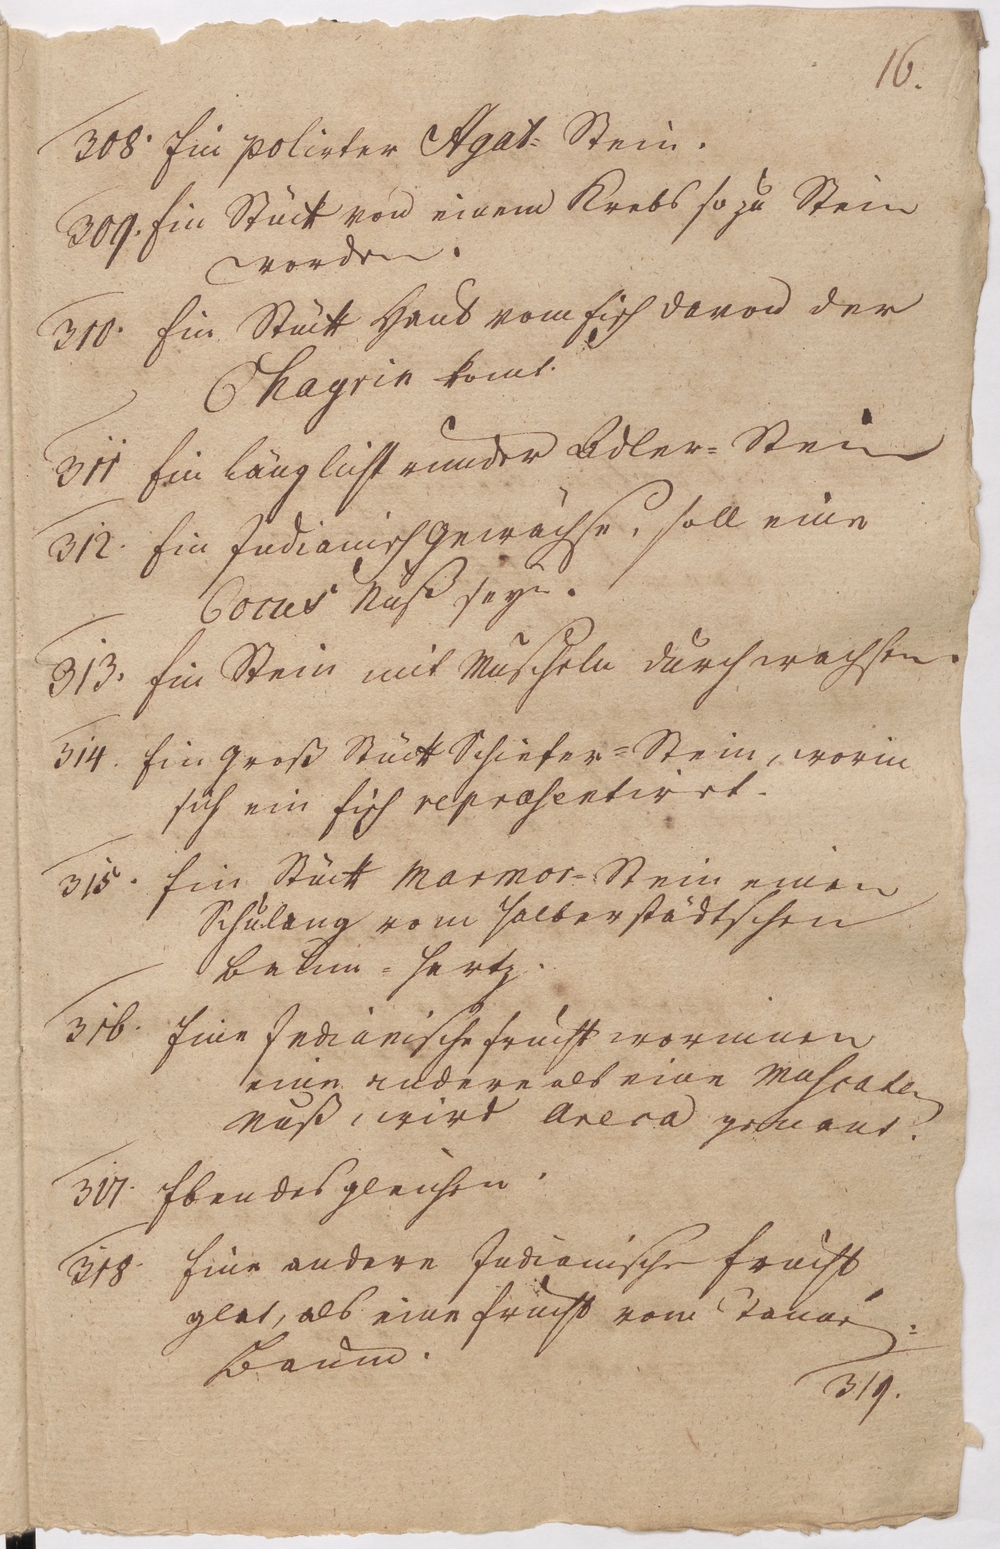 16.
308. Ein polirter Agat= Stein.
309. Ein Stück von einem Krebs so zu Stein
worden.
310. Ein Stück Haut vom fisch davon der
Chagrin komt.
311 Ein länglicht runder Adler= Stein
312. Ein Indianisch Gewächse, soll eine
Cocus Nuß seyn.
313. Ein Stein mit Muscheln durchwachsen.
314. Ein groß Stück Schiefer=Stein, worin
sich ein fisch repræsentirt.
315. Ein Stück Marmor=Stein einen
vom Halberstädtschen
= Hertz.
316. Eine Indianische frucht worinnen
eine andere als eine Muscaten
Nuß, wird Areca genant.
317. Eben desgleichen.
318 Eine andere Indianische frucht
glat, als eine frucht vom
Baum.
319.